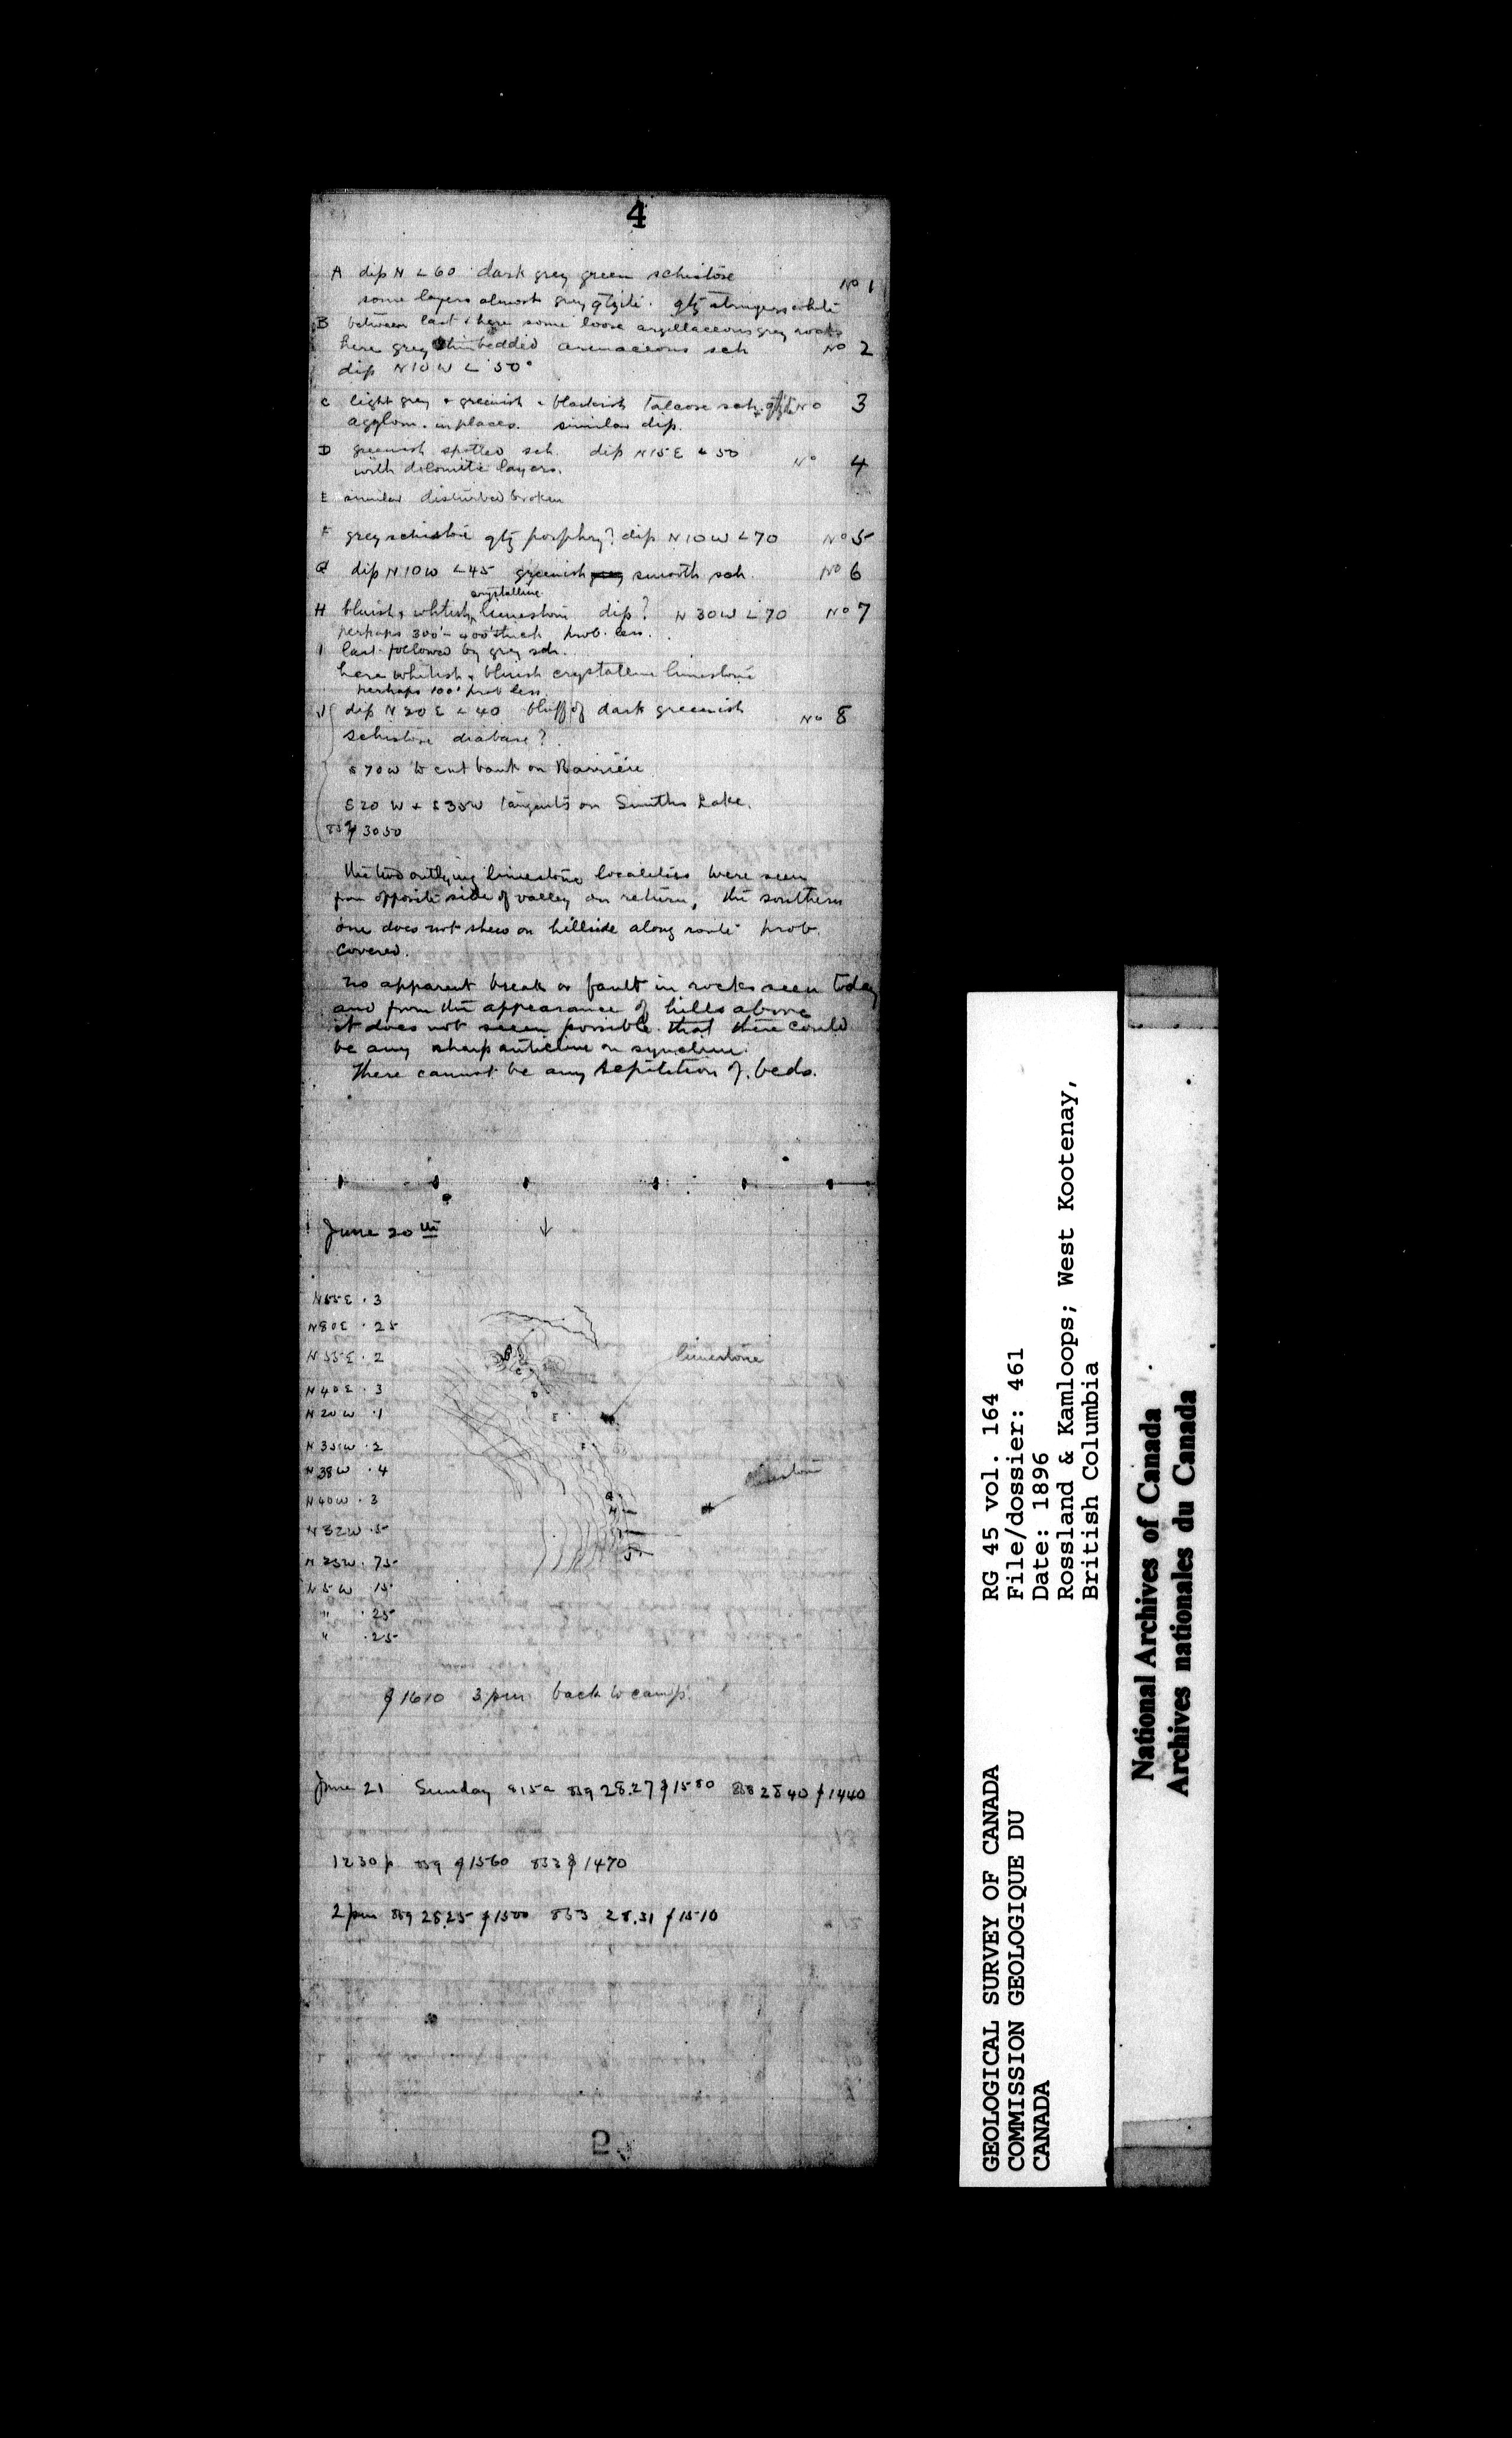 4
A dip N ∠ 60 dark grey green schistose
No 1
some layers almost grey qtzite. qtz stringers white
B between last & here some loose argillaceous grey rocks
here grey thin bedded arenaceous sch No 2
dip N10W ∠ 50°
C light grey & greenish & blackish talcose sch. & qtzite No 3
agglom. in places. similar dip.
D greenish spotted sch. dip N15E ∠ 50
with dolomite layers. No 4
E similar disturbed broken
F grey schistose qtz porphry? dip N10W ∠70 No 5
G dip N10W ∠45 greenish grey smooth sch. No 6
crystalline
H bluish & whitish limestone dip? N30W ∠70 No 7
perhaps 300'– 400' thick prob. less.
I last followed by grey sch.
here whitish & bluish crystalline limestone
perhaps 100' prob less.
J dip N20E ∠ 40 bluff of dark greenish No 8
schistose diabase?
S70W to cut bank on Barrière
S20W & S35W tangents on Smiths Lake.
859 3050
The two outlying limestone localities were seen
from opposite side of valley on return, the southern
one does not shew on hillside along route prob.
covered.
No apparent break or fault in rocks seen today
and from the appearance of hills above
it does not seem possible that there could
be any sharp anticline or syncline.
There cannot be any repitition of beds.
June 20th
N55E .3
N80E .25
N55E .2
N40E .3
N20W .1
N35W .2
N38W .4
N40W .3
N32W .5
N23W .75
N5W 15
" .25
" .25
limestone
B
C
D
E
F
G
H
I
J
1610 3 pm back to camp.
June 21 Sunday 815a 859 28.27 1580 28 40 1440
1230p 859 1560 853 1470
2 pm 859 28.25 1500 853 28.31 1510
5
GEOLOGICAL SURVEY OF CANADA
COMMISSION GEOLOGIQUE DU
CANADA
RG 45 vol. 164
File/dossier: 461
Date: 1896
Rossland & Kamloops; West Kootenay,
British Columbia
National Archives of Canada
Archives nationales du Canada